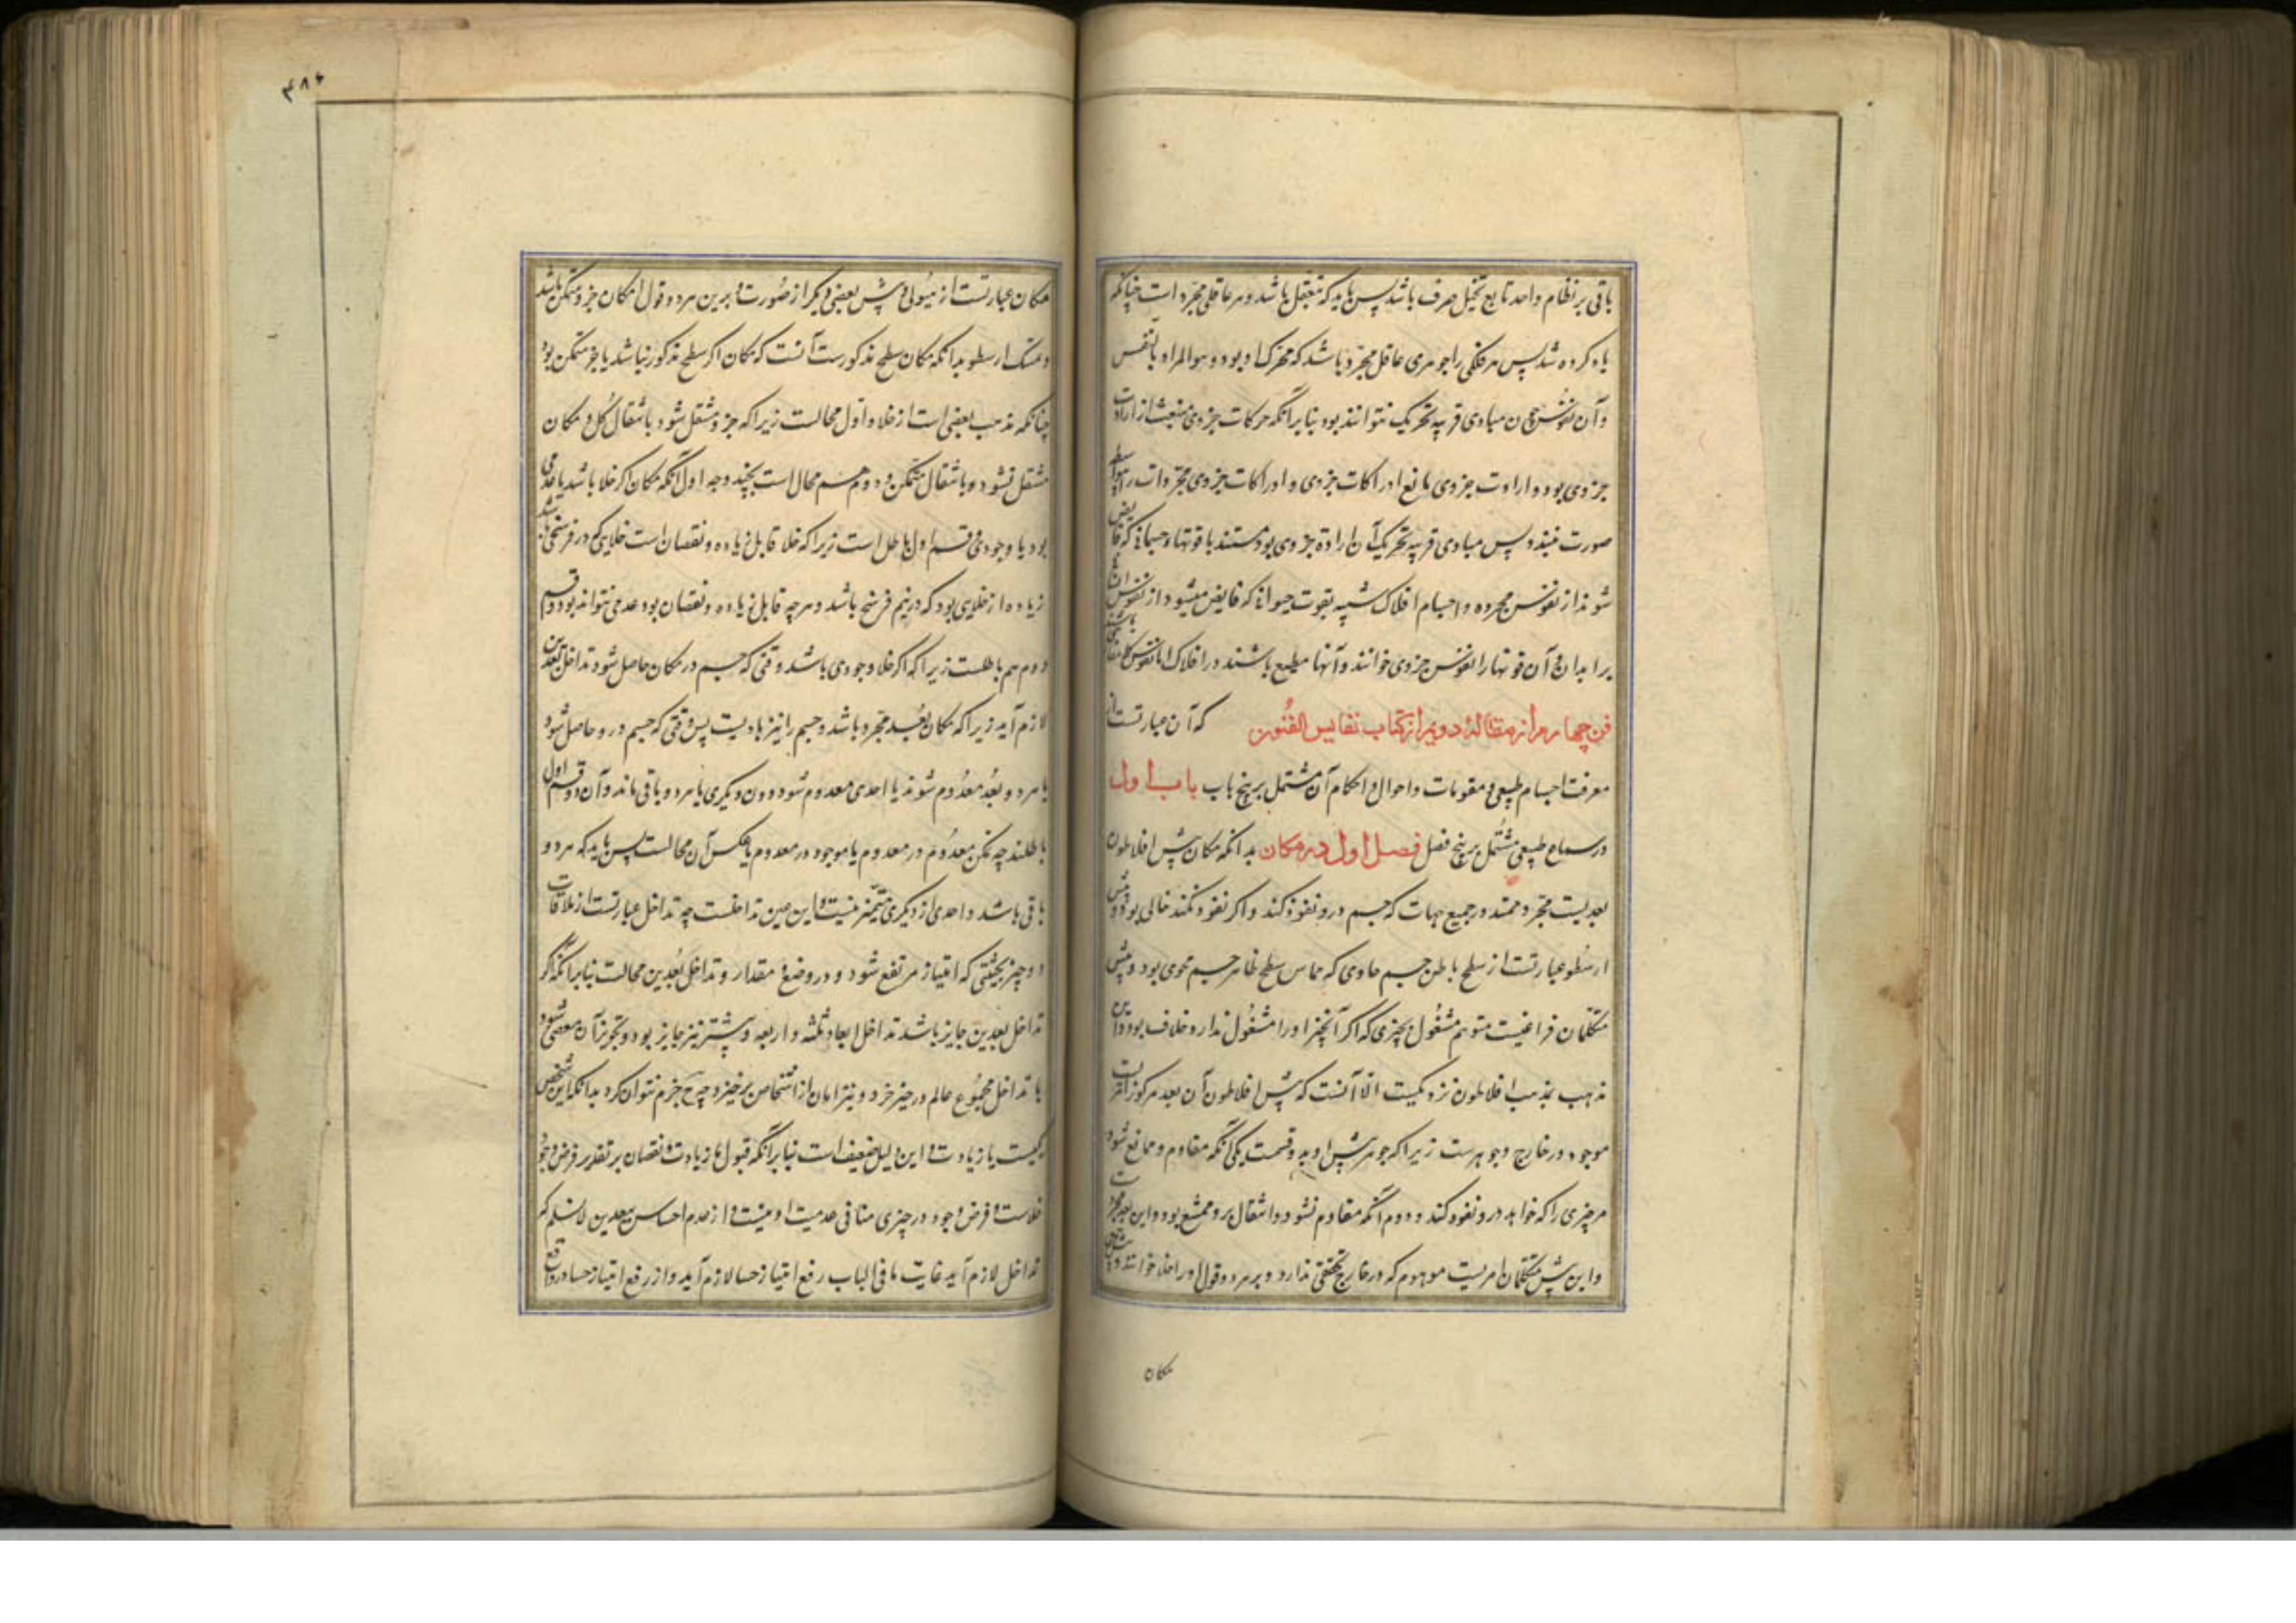 باقی بر نظام واحد تابع تخیل صرف باشد پس باید که متعقل باشد و هر عاقلی مجرد است چنانکه
یاد کرده شد پس هر فلکی را جوهری عاقل مجرد باشد که محرک او بود و هو المراد بالنفس
و آن نفوس چون مبادی قریبه تحریک نتوانند بود بنابر آنکه حرکات جزوی منبعث از ارادت
جزوی بود و ارادت جزوی مانع ادراکات جزوی و ادراکات جزوی مجردات را
صورت نبندد پس مبادی قریبه تحریک آن ارادة جزوی بود مستند با قوتهاء جسمانی که فایض
شوند از نفوس مجرده و اجسام افلاک شبیه بقوت حیوانی که فایض میشود از نفوس
بر ابدان و آن قوتها را نفوس جزوی خوانند و آنها مطیع باشند در افلاک اما نفوس
فن چهارم از مقالۀ دویم از کتاب نفایس الفنون که آن عبارتست از
معرفت اجسام طبیعی و مقومات و احوال و احکام آن مشتمل بر پنج باب باب اول
در سماع طبیعی مشتمل بر پنج فصل فصل اول در مکان بدانکه مکان پیش افلاطون
بعدیست مجرد ممتد در جمیع جهات که جسم درو نفوذ کند و اگر نفوذ نکند خالی بود و پیش
ارسطو عبارتست از سطح باطن جسم حاوی که مماس سطح ظاهر جسم محوی بود و پیش
متکلمان فراغیست متوهم مشغول بچیزی که اگر آنچیز او را مشغول ندارد خلاف بود و این
مذهب بمذهب افلاطون نزدیکیست الا آنست که پیش افلاطون آن بعد مرکوز امریست
موجود در خارج و جوهرست زیرا که جوهر پیش او بدو قسمست یکی آنکه مقاوم و ممانع شود
هر چیزی را که خواهد درو نفوذ کند و دوم آنکه مقاوم نشود و انتقال برو ممتنع بود و این بعد مجرد
و این پیش متکلمان امریست موهوم که در خارج تحققی ندارد و بر هر دو قول او را خلا خوانند و پیش
مکان
۴۸۴
مکان عبارتست از هیولی و پیش بعضی دیگر از صورت و برین هر دو قول مکان جزو متمکن باشد
و متمسک ارسطو بدانکه مکان سطح مذکورست آنست که مکان اگر سطح مذکور نباشد یا جزو متمکن بود
چنانکه مذهب بعضی است از خلا و اول محالست زیرا که جزو منتقل شود بانتقال کل و مکان
منتقل نشود بانتقال متمکن و دوم هم محال است بچند وجه اول آنکه مکان اگر خلا باشد یا عدمی
بود یا وجودی قسم اول باطل است زیرا که خلا قابل زیاده و نقصان است خلایی که در فرسخی باشد
زیاده از خلایی بود که در نیم فرسخ باشد و هر چه قابل زیاده و نقصان بود عدمی نتواند بود و قسم
دوم هم باطلست زیرا که اگر خلا وجودی باشد وقتی که جسم در مکان حاصل شود تداخل بعدین
لازم آید زیرا که مکان بعد مجرد باشد و جسم را نیز بعدیست پس وقتی که جسم درو حاصل شود
یا هر دو بعد معدوم شوند یا احدی معدوم شود دون دیگری یا هر دو باقی ماند و آن دو قسم اول
باطلند چه تمکن معدوم در معدوم یا موجود در معدوم یا عکس آن محالست پس باید که هر دو
باقی باشد و احدی از دیگری متمیز نیست و این عین تداخلست چه تداخل عبارتست از ملاقات
دو چیز بحیثیتی که امتیاز مرتفع شود در وضع و مقدار و تداخل بعدین محالست بنابر آنکه اگر
تداخل بعدین جایز باشد تداخل ابعاد ثلثه و اربعه و بیشتر نیز جایز بود و تجویز آن مفضی شود
با تداخل مجموع عالم در حیز خرد و نیز امان از اشخاص برخیزد و هیچ جزم نتوان کرد بدانکه این شخص
یکیست یا زیادت و این دلیل ضعیف است بنابر آنکه قبول ما زیادت و نقصان بر تقدیر فرض وجود
خلاست و فرض وجود در چیزی منافی عدمیت او نیست و از عدم احساس بعدین لانسلم که
تداخل لازم آید غایت ما فی الباب رفع امتیاز حسا لازم آید و از رفع امتیاز حسا در واقع